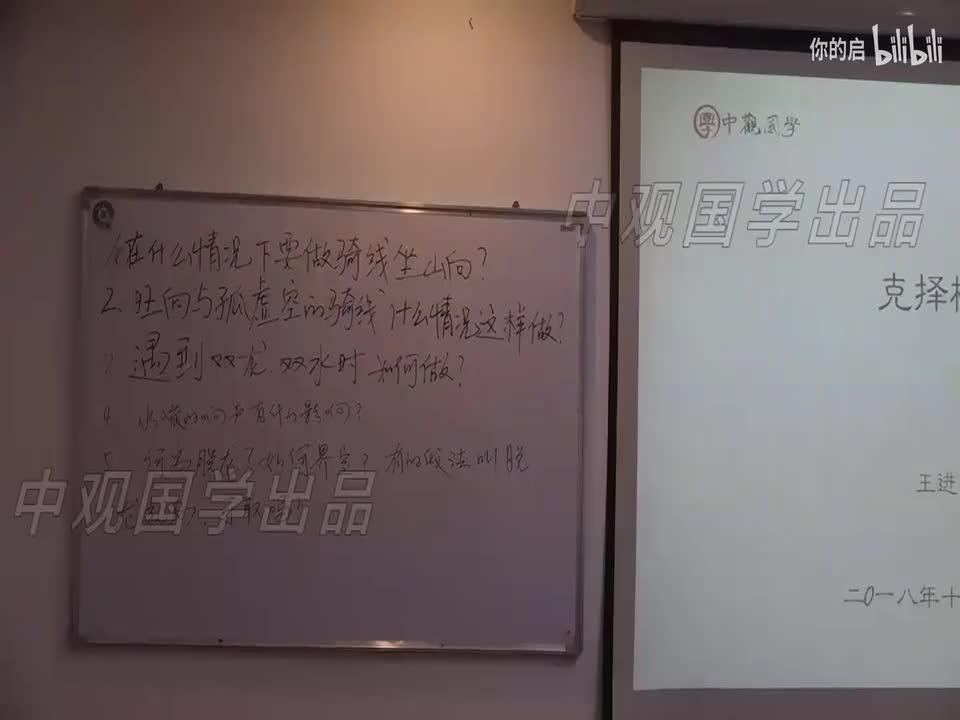 你的启 bilibili
學 中觀国学
中观国学出品
1.在什么情况下要做骑线坐山向?
克择
2.旺向与孤虚空的骑线 什么情况这样做?
3 遇到双龙.双水时 如何做?
4 水流的响声有什么影响?
5 何为脱龙?如何界定?有的做法叫脱
王进
中观国学出品
二〇一八年十